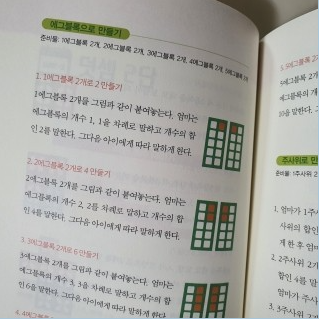 에그블록으로 만들기
준비물: 1에그블록 2개, 2에그블록 2개, 3에그블록 2개, 4에그블록 2개, 5에그블록
1. 1에그블록 2개로 2 만들기
1에그블록 2개를 그림과 같이 붙여놓는다. 엄마는
에그블록의 개수 1, 1을 차례로 말하고 개수의 합
인 2를 말한다. 그다음 아이에게 따라 말하게 한다.
2. 2에그블록 2개로 4 만들기
2에그블록 2개를 그림과 같이 붙여놓는다. 엄마는
에그블록의 개수 2, 2를 차례로 말하고 개수의 합
인 4를 말한다. 그다음 아이에게 따라 말하게 한다.
3. 3에그블록 2개로 6 만들기
3에그블록 2개를 그림과 같이 붙여놓는다. 엄마는
에그블록의 개수 3, 3을 차례로 말하고 개수의 합
인 6을 말한다. 그다음 아이에게 따라 말하게 한다.
4. 4에그블록
5. 5에그블
5에그블록
에그블록의
10을 말한다.
주사위로 만
준비물: 1주사위 2
1. 엄마가 1주
사위의 합
게 한 후 엄마
2. 2주사위 2
합인 4를 말
따라 말하게
3. 3주사위